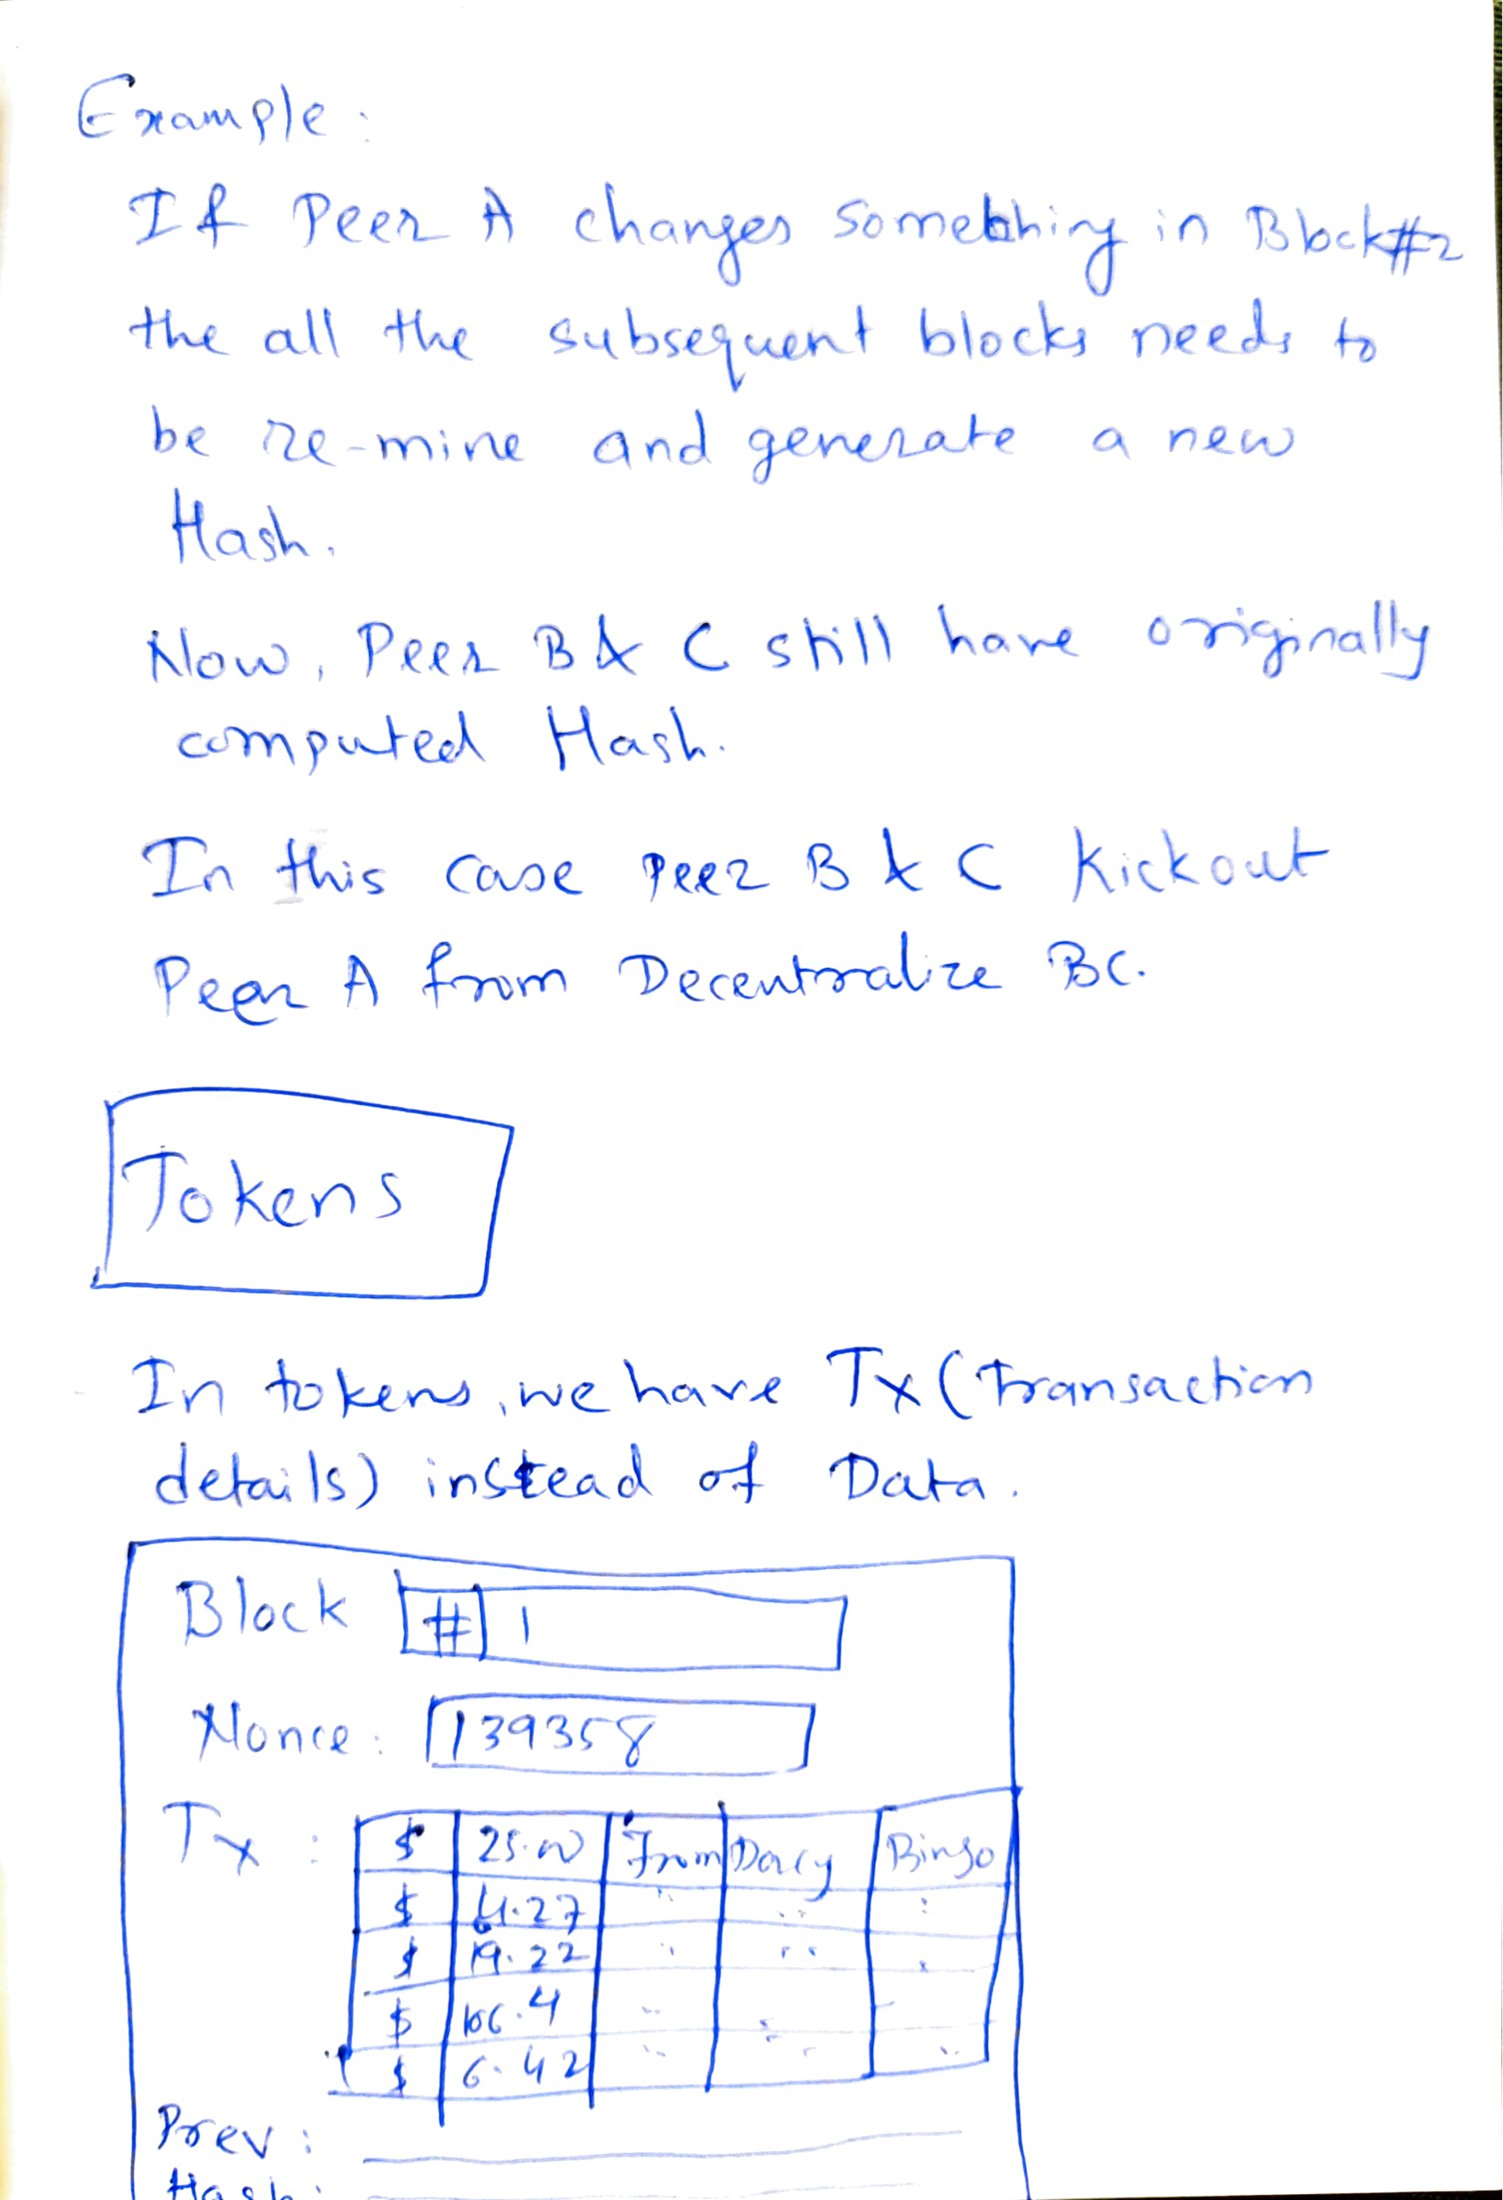 Example:
If Peer A changes something in Block#2
the all the subsequent blocks needs to
be re-mine and generate a new
Hash.
Now, Peer B & C still have originally
computed Hash.
In this case Peer B & C Kickout
Peer A from Decentralize BC.
Tokens
In tokens, we have Tx (Transaction
details) instead of Data.
Block # 1
Nonce: 139358
Tx: $ 25.00 From Darcy Bingo
$ 4.27 " " "
$ 19.22 " " "
$ 106.4 " "
$ 6.42 " " "
Prev:
Hash: